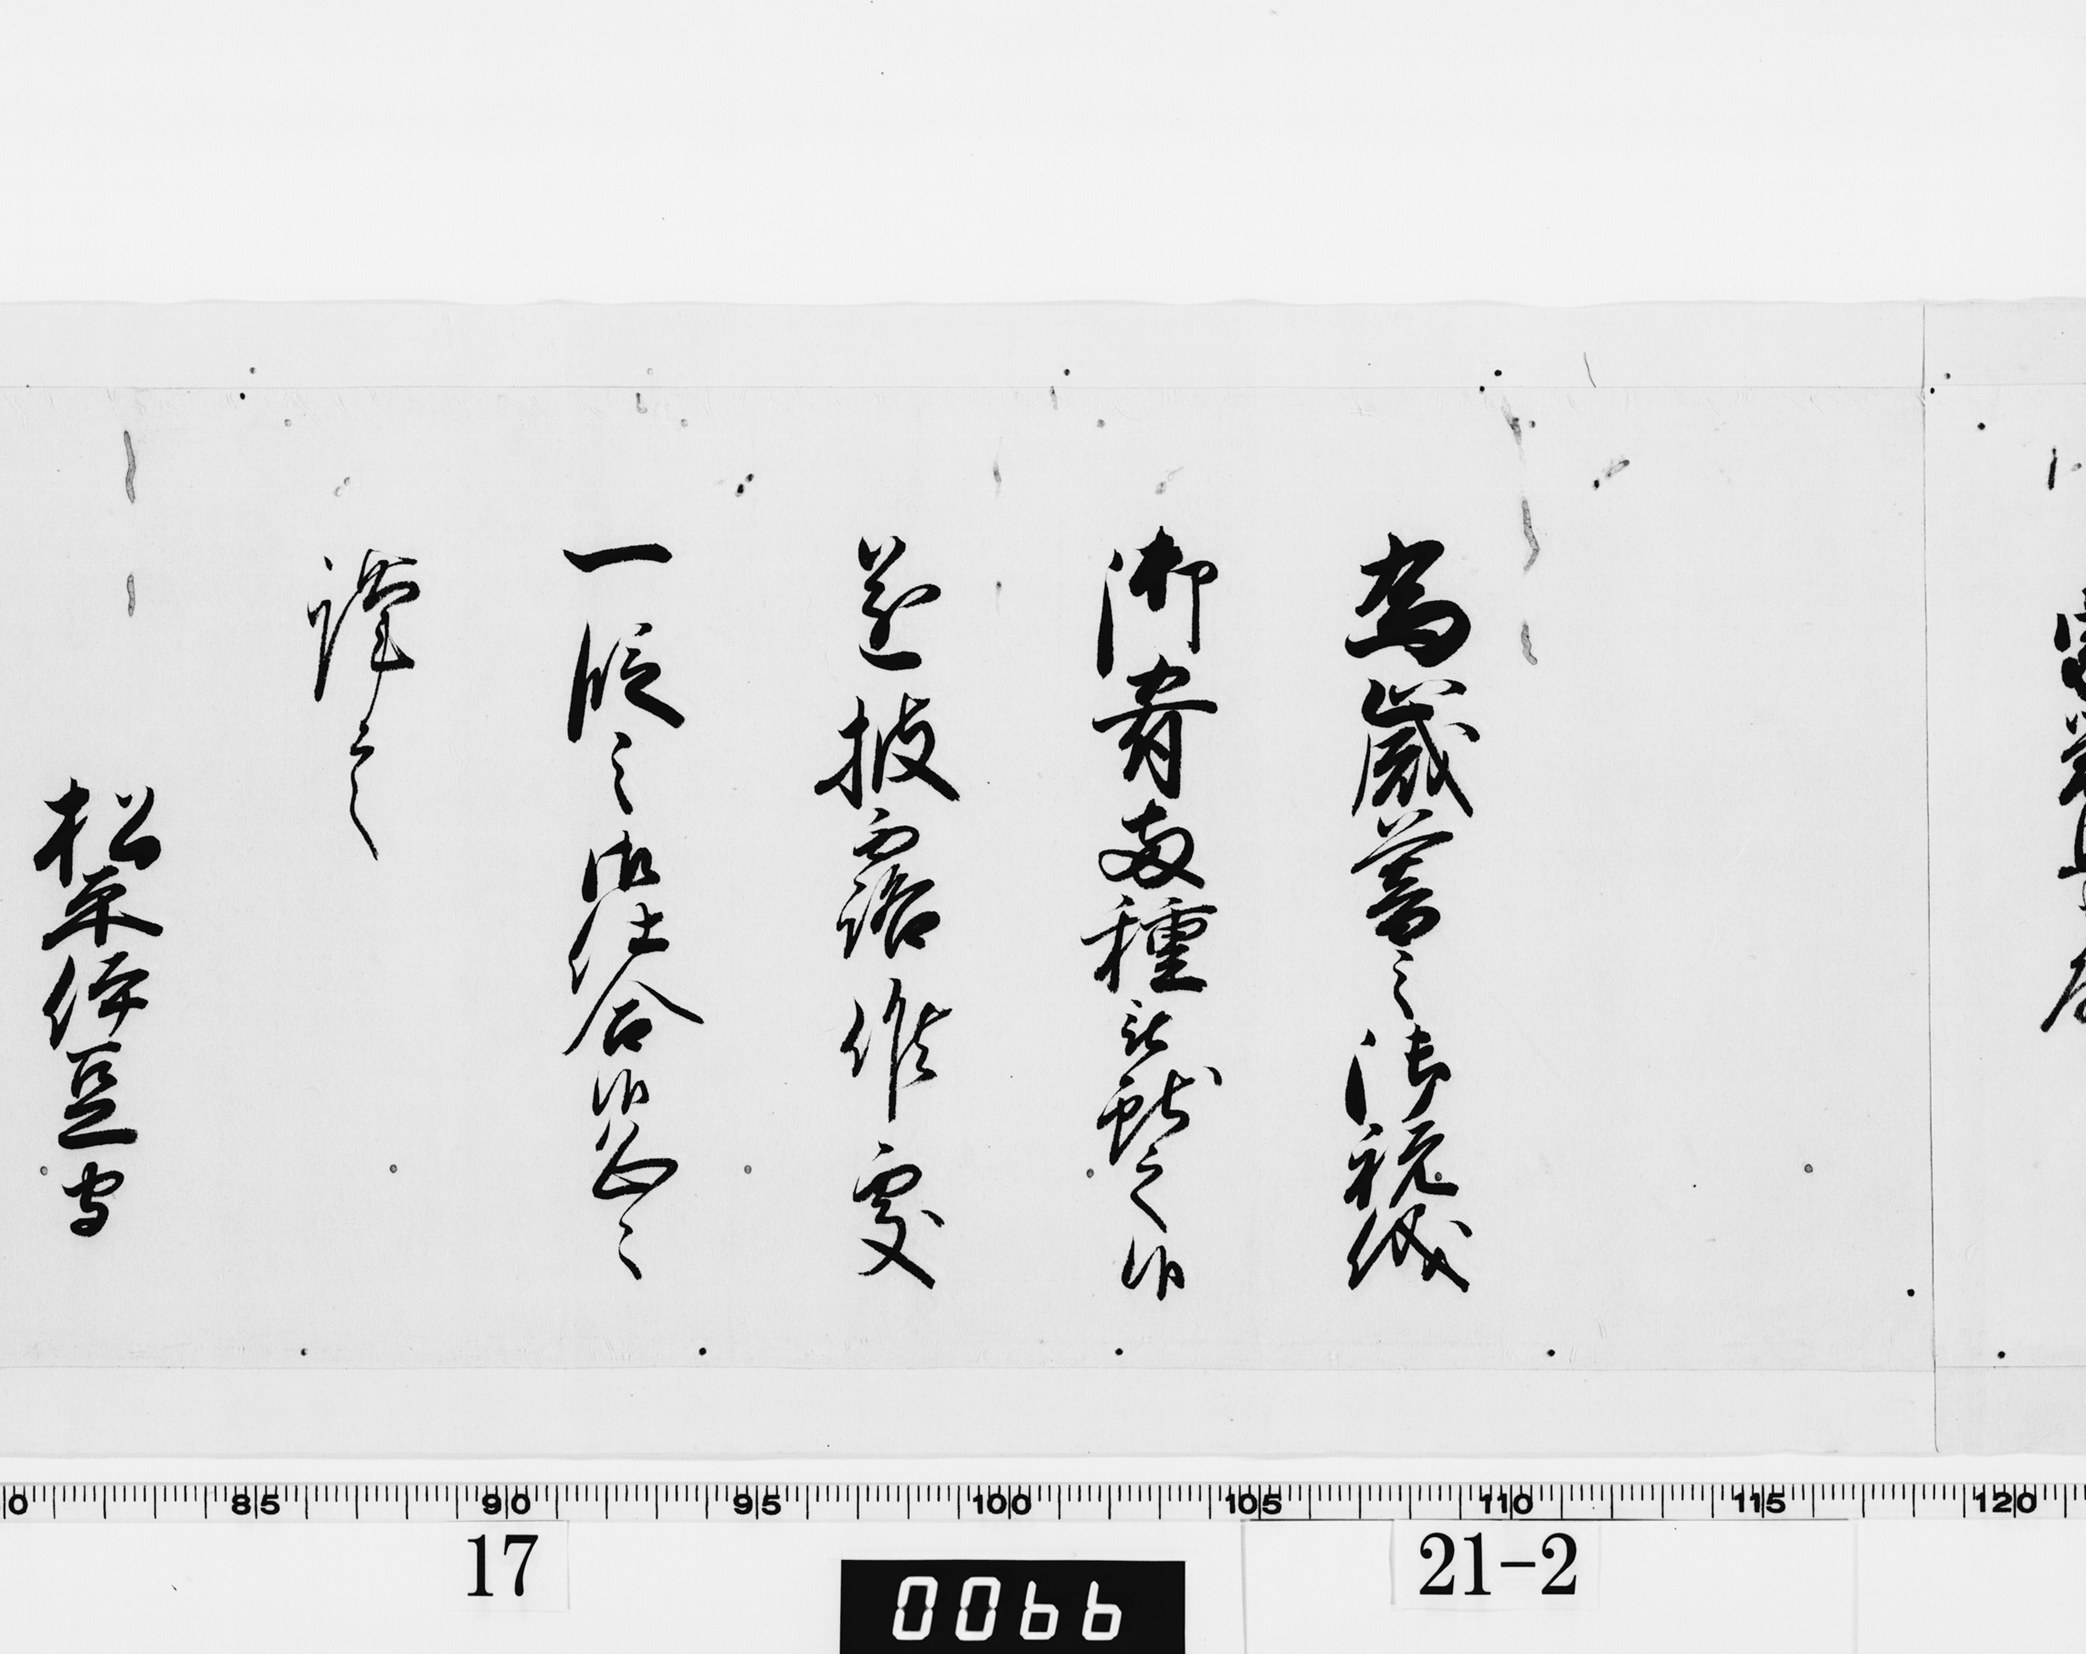 為歳暮之御祝儀
御肴両種被献之候
遂披露候處
一段之御仕合候恐々
謹言
松平伊豆守
0 85 90 95 100 105 110 115 120
17
0066
21-2